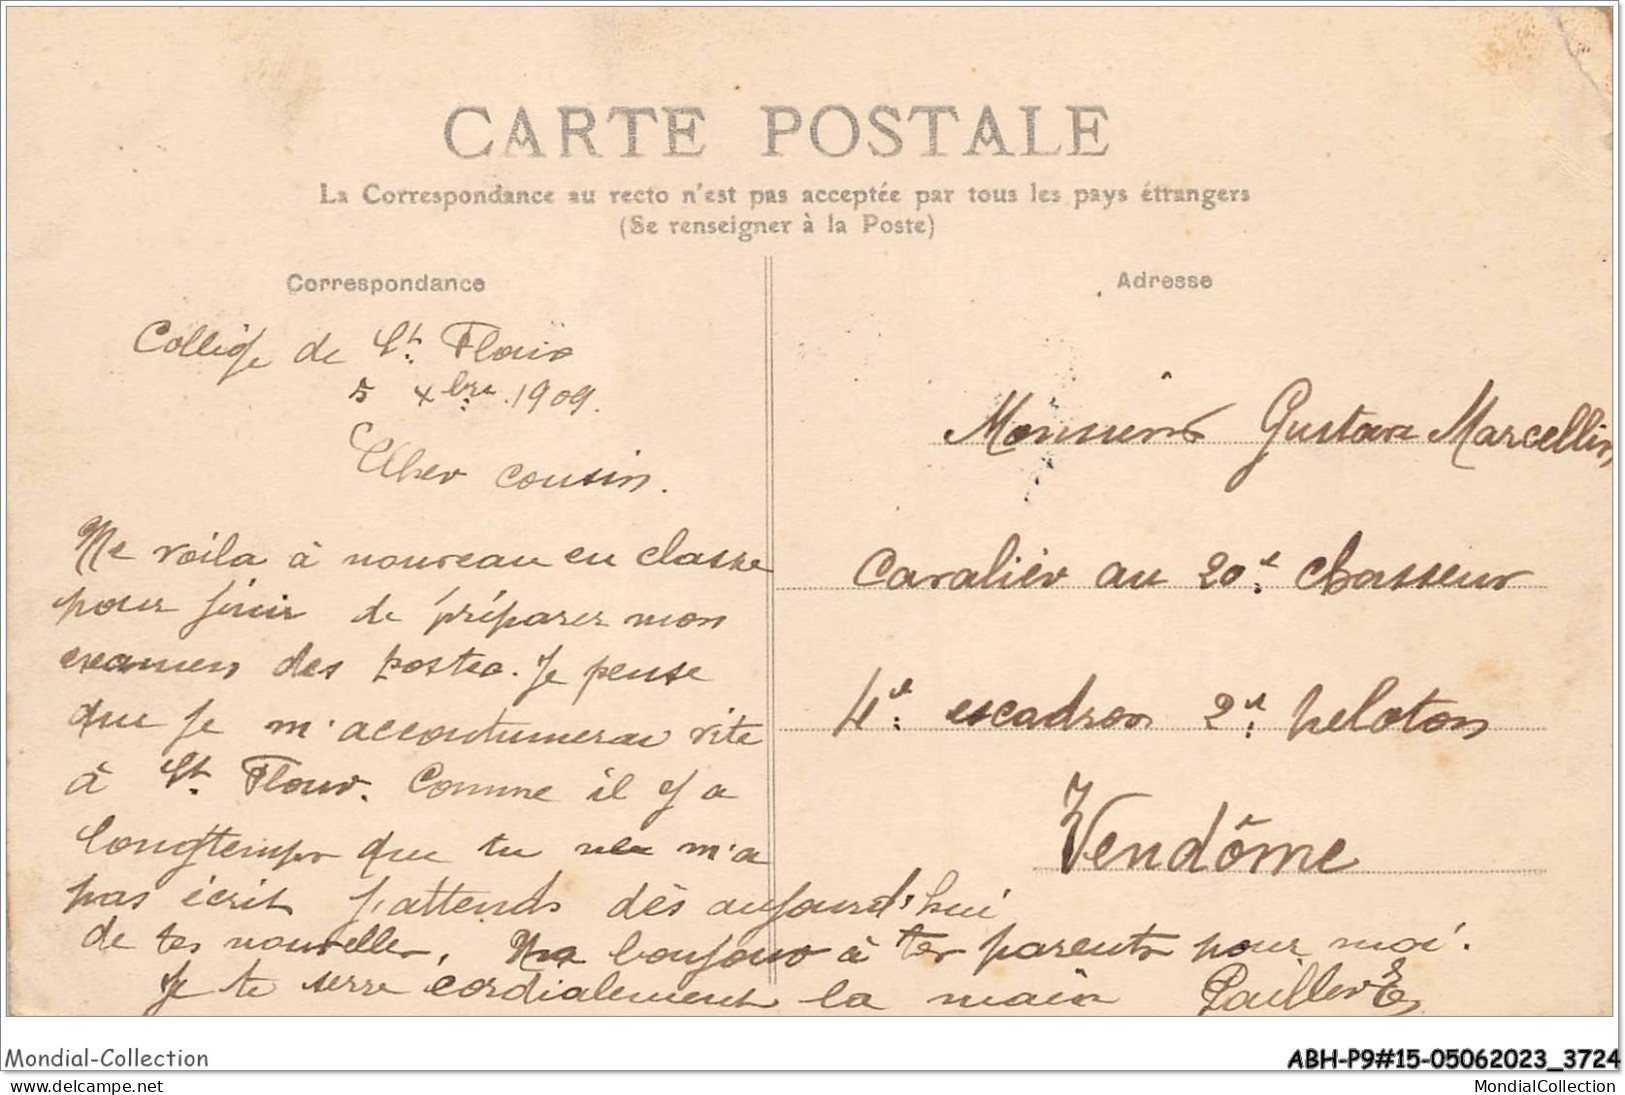 CARTE POSTALE
La Correspondance au recto n'est pas acceptée par tous les pays étrangers
(Se renseigner à la Poste)
Correspondance
Collège de St. Flour
5 Xbre. 1909.
Cher cousin.
Me voila à nouveau en classe
pour finir de préparer mon
examen des postes. Je pense
que je m'accoutumerai vite
à St. Flour. Comme il y a
longtemps que tu ne m'a
pas écrit j'attends dès aujourd'hui
de tes nouvelles. bonjour à tes parents pour moi.
Je te serre cordialement la main Pailler E
Adresse
Monsieur Gustave Marcellin
Cavalier au 20e. chasseur
4e. escadron 2e. peloton
Vendôme
Mondial-Collection
ABH-P9#15-05062023_3724
www.delcampe.net
MondialCollection